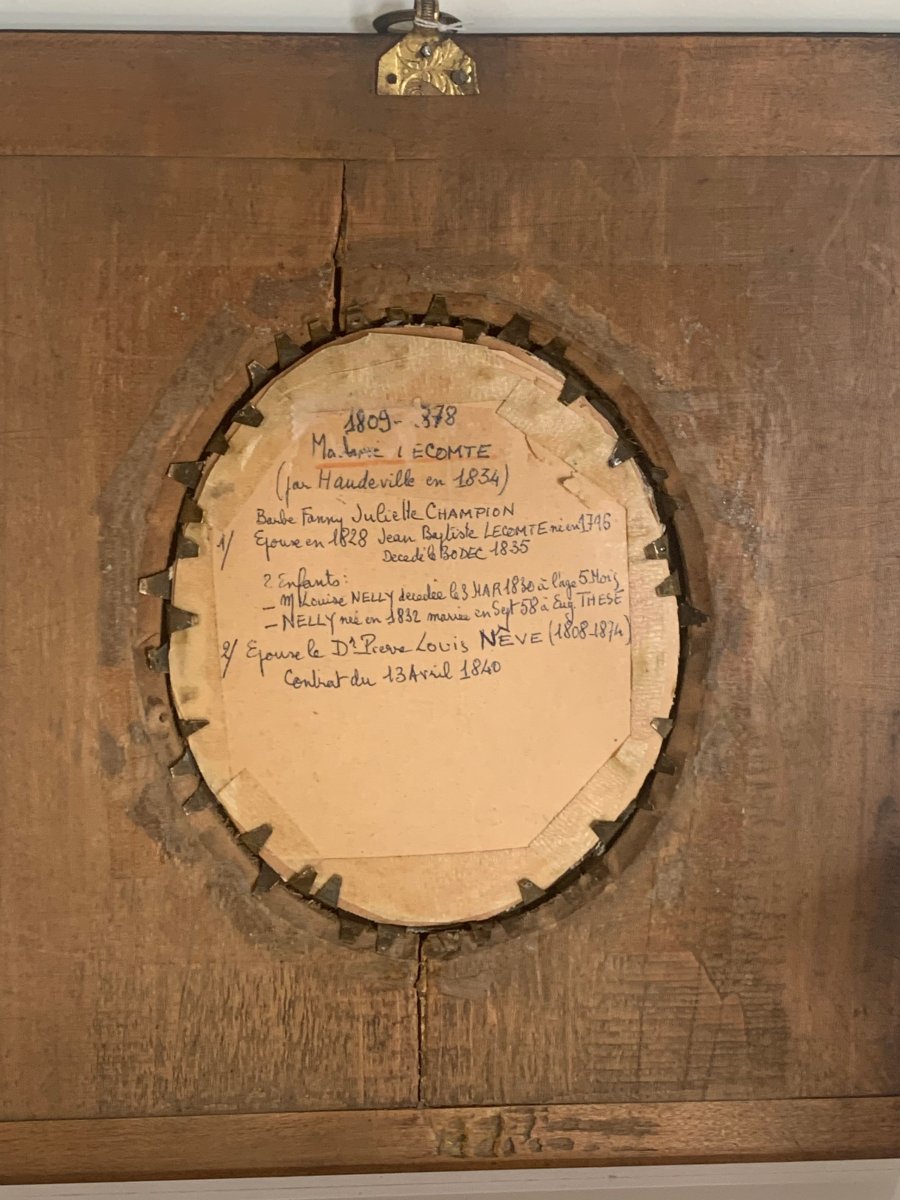 1809- 1878
Madame LECOMTE
(par Haudeville en 1834)
Barbe Fanny Juliette CHAMPION
1/ Epouse en 1828 Jean Baptiste LECOMTE né en 1796
Decedé le 30 DEC 1835
2 Enfants:
– M Louise NELLY décedée le 3 MAR 1830 à l'age 5 Mois
– NELLY née en 1832 mariée en Sept 58 à Eug THESE
2/ Epouse le Dr Pierre Louis NÈVE (1808-1874)
Contrat du 13 Avril 1840